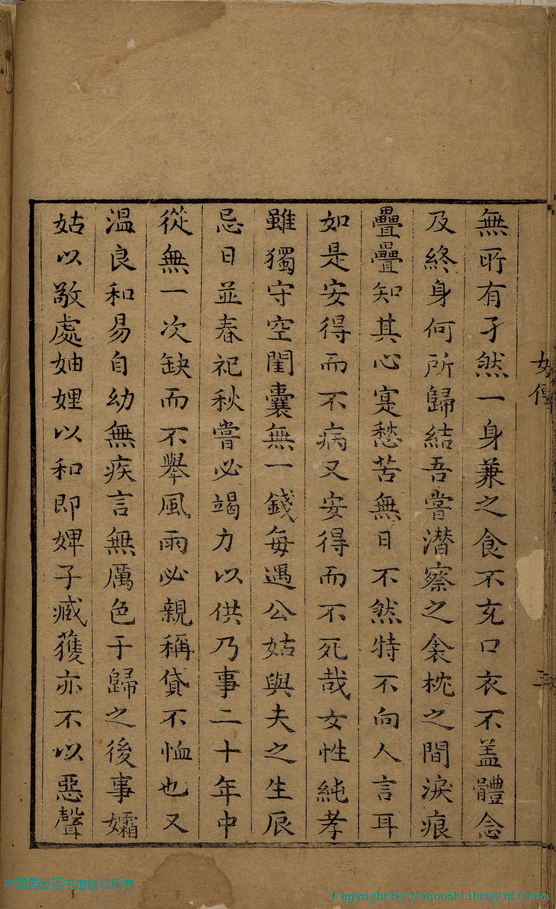 女傳
三
無所有孑然一身兼之食不充口衣不盖體念
及終身何所歸結吾嘗潜察之衾枕之間淚痕
疊疊知其心寔愁苦無日不然特不向人言耳
如是安得而不病又安得而不死哉女性純孝
雖獨守空閨囊無一錢每遇公姑與夫之生辰
忌日並春祀秋嘗必竭力以供乃事二十年中
從無一次缺而不舉風雨必親稱貸不恤也又
温良和易自幼無疾言無厲色于歸之後事孀
姑以敬處妯娌以和即婢子臧獲亦不以惡聲
Copyright By National Library of China